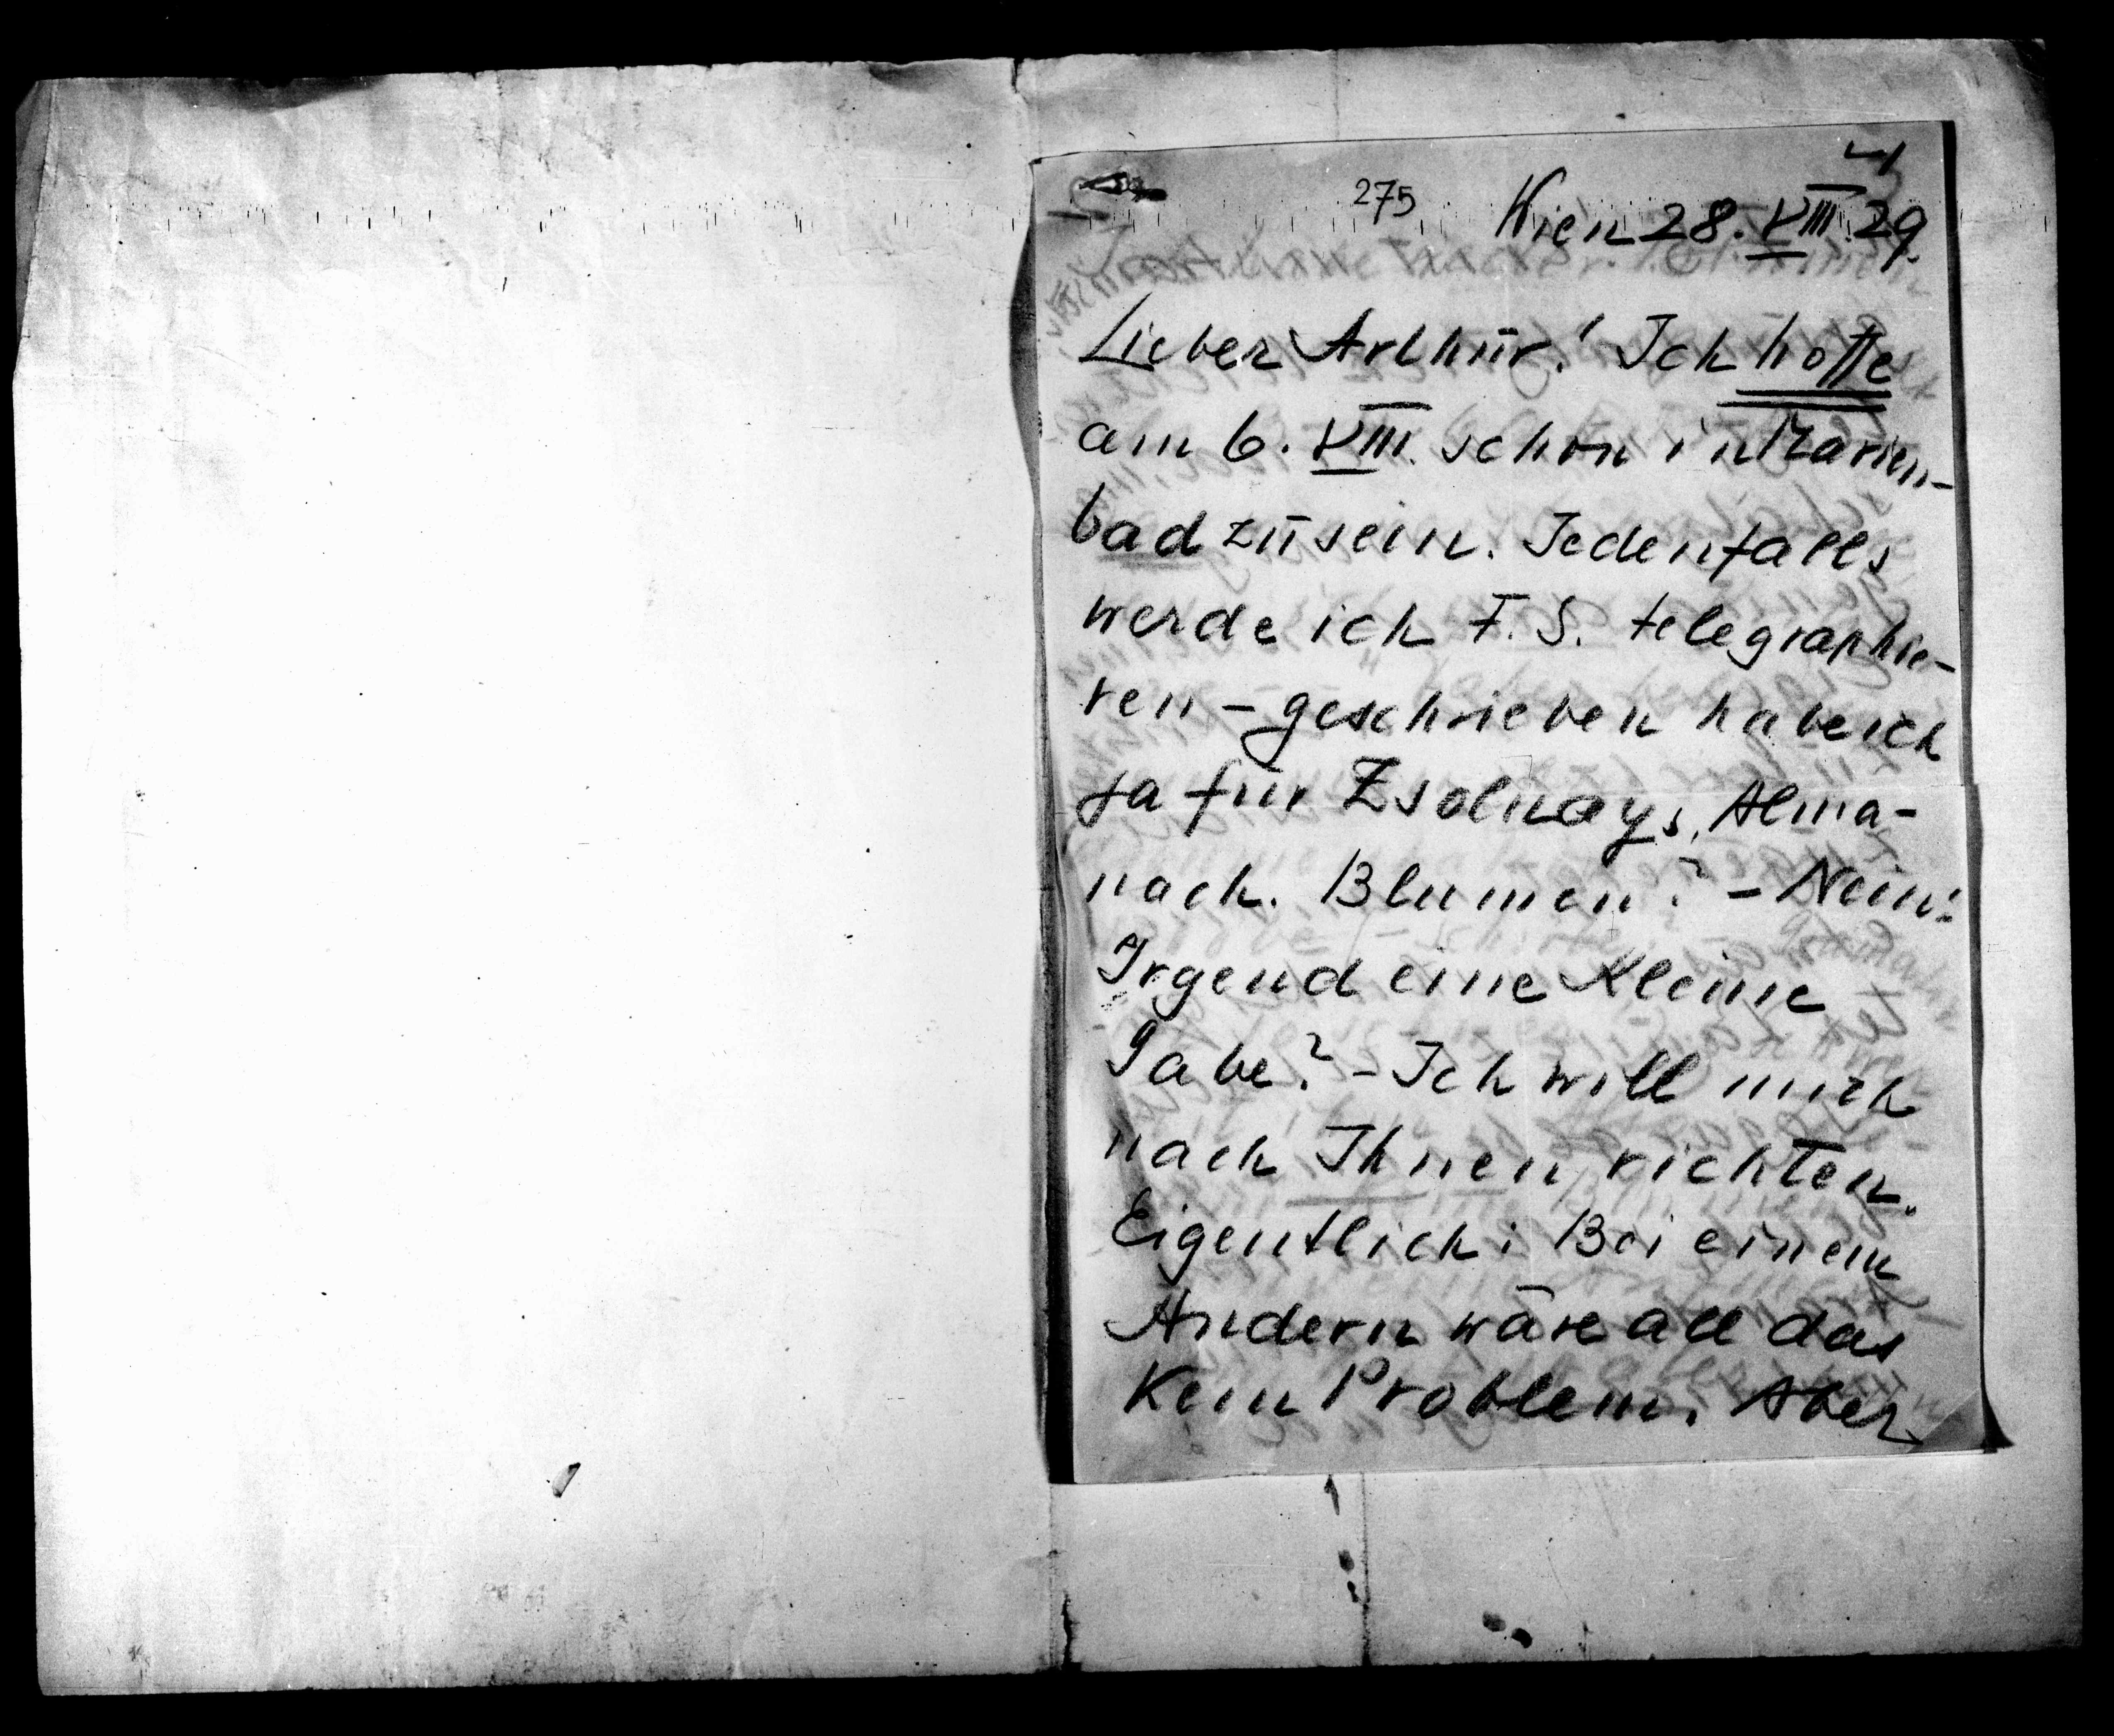 275
Wien 28. VIII. 29
Lieber Arthur! Ich hoffe
am 6. VIII. schon in Marien-
bad zu sein. Jedenfalls
werde ich F. S. telegraphie-
ren – geschrieben habe ich
ja für Zsolnays, Alma-
nach. Blumen? – Nein!
Irgend eine kleine
Gabe? – Ich will mich
nach Ihnen richten.
Eigentlich: Bei einem
Andern wäre all das
kein Problem. Aber